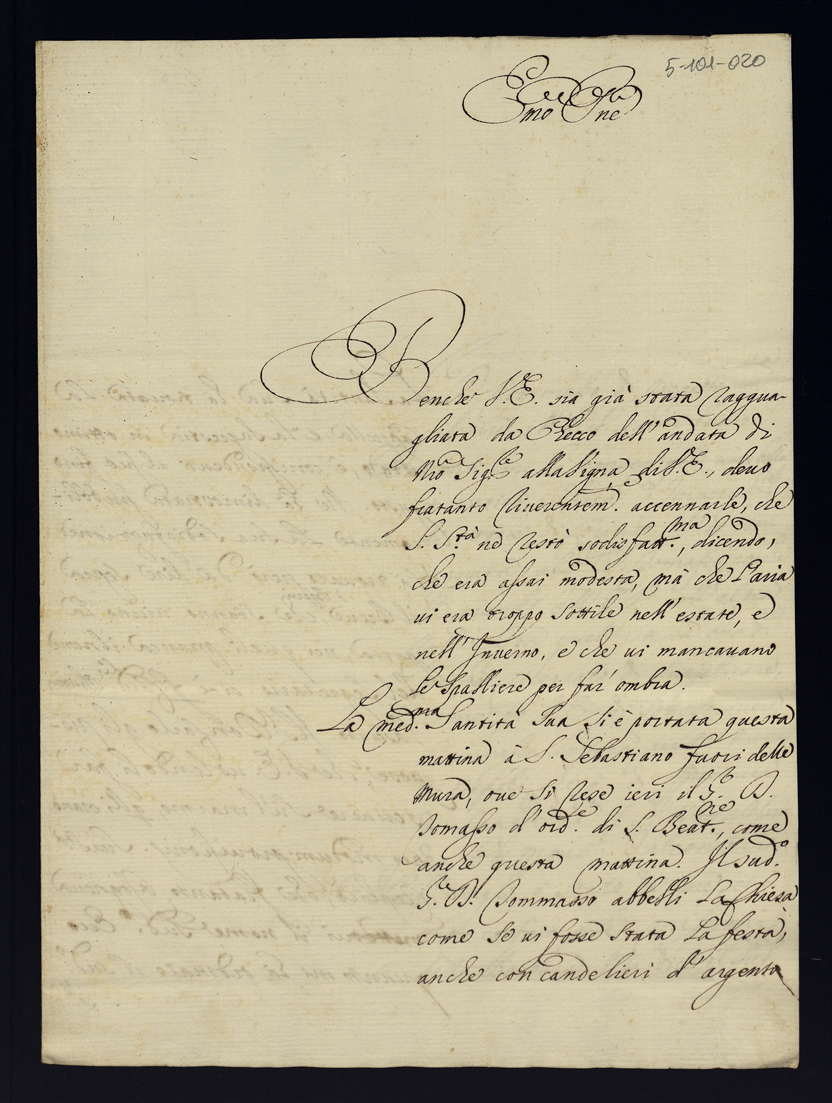 5-101-020
Emo Pne
Benche V.E. sia già stata raggua-
gliata da Recco dell'andata di
Nro Sig.re alla Vigna di V.E., devo
fratanto riverentem. accennarle, che
S. S.tà ne restò sodisfatt.ma, dicendo,
che era assai modesta, mà che l'aria
vi era troppo sottile nell'estate, e
nell'Inverno, e che vi mancavano
le spalliere per far ombra.
La med.ma Santità Sua si è portata questa
mattina à S. Sebastiano fuori delle
Mura, ove si rese ieri il D.
Tomasso d'ord.e di S. Beat.ne, come
anche questa mattina. Il sud.o
D. Tommasso abbellì la Chiesa
come se vi fosse stata la festa,
anche con candelieri d'argento